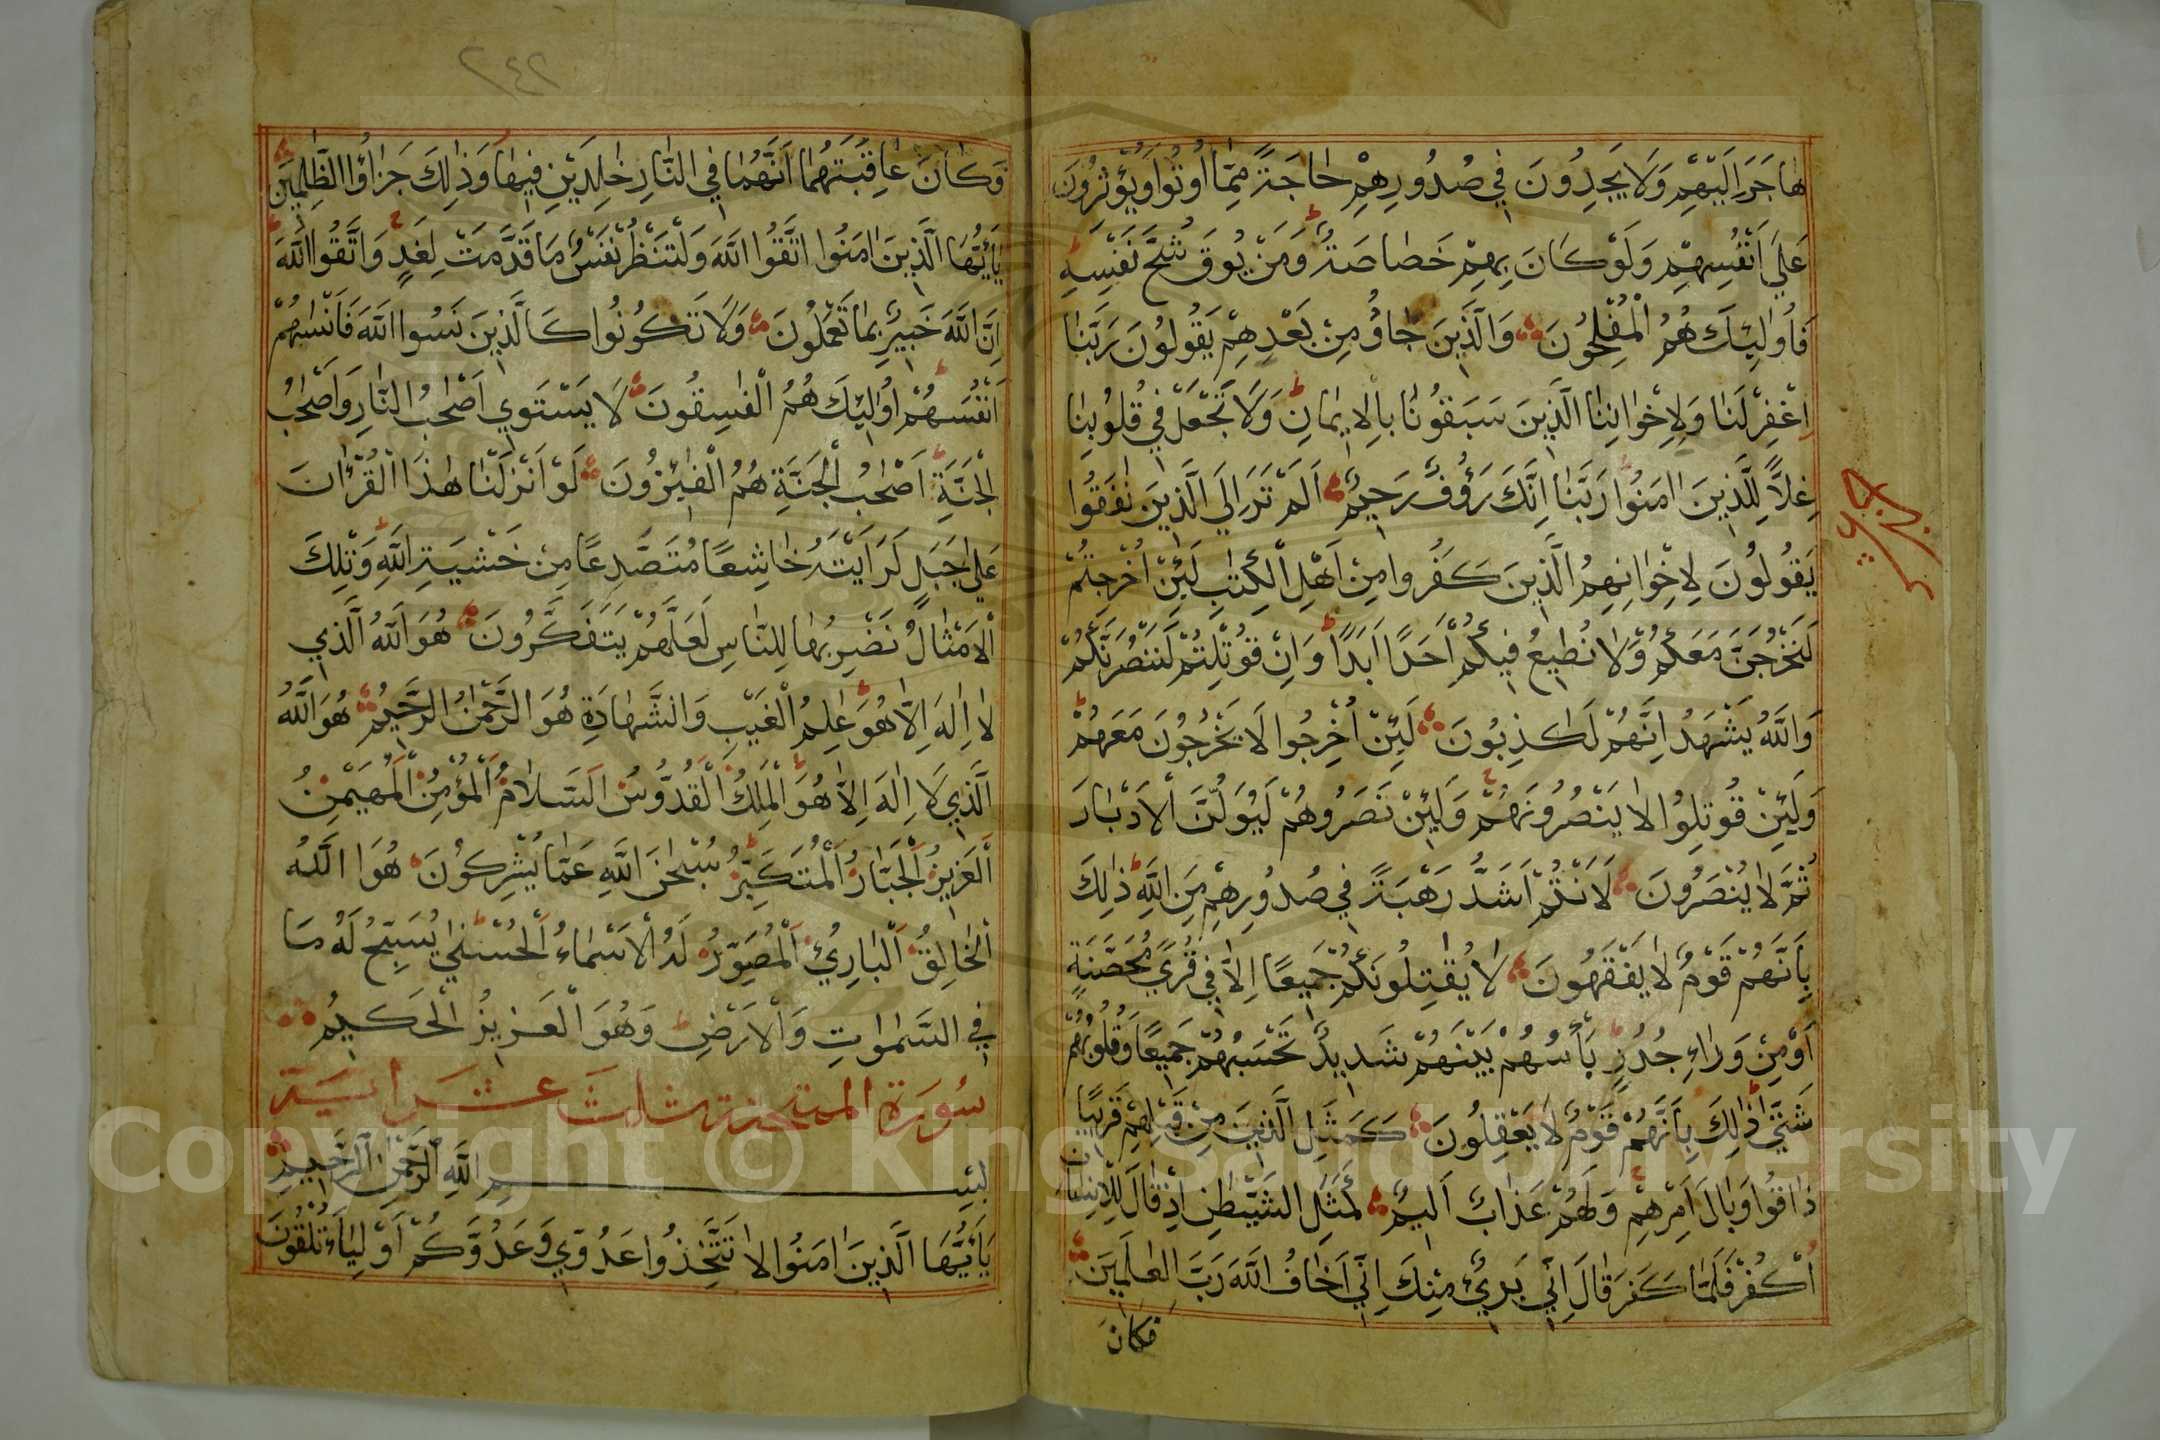 هَاجَرَ اِلَيْهِمْ وَلَا يَجِدُونَ فِي صُدُورِهِمْ حَاجَةً مِمَّا اُوتُوا وَيُؤْثِرُونَ
عَلَى اَنْفُسِهِمْ وَلَوْ كَانَ بِهِمْ خَصَاصَةٌ ط وَمَنْ يُوقَ شُحَّ نَفْسِهِ
فَاُولٰئِكَ هُمُ الْمُفْلِحُونَ وَالَّذِينَ جَاؤُ مِنْ بَعْدِهِمْ يَقُولُونَ رَبَّنَا
اغْفِرْ لَنَا وَلِاِخْوَانِنَا الَّذِينَ سَبَقُونَا بِالْاِيمَانِ ط وَلَا تَجْعَلْ فِي قُلُوبِنَا
غِلًّا لِلَّذِينَ اٰمَنُوا رَبَّنَا اِنَّكَ رَؤُفٌ رَحِيمٌ اَلَمْ تَرَ اِلَى الَّذِينَ نَافَقُوا
يَقُولُونَ لِاِخْوَانِهِمُ الَّذِينَ كَفَرُوا مِنْ اَهْلِ الْكِتٰبِ لَئِنْ اُخْرِجْتُمْ
لَنَخْرُجَنَّ مَعَكُمْ وَلَا نُطِيعُ فِيكُمْ اَحَدًا اَبَدًا ط وَاِنْ قُوتِلْتُمْ لَنَنْصُرَنَّكُمْ
وَاللّٰهُ يَشْهَدُ اِنَّهُمْ لَكٰذِبُونَ لَئِنْ اُخْرِجُوا لَا يَخْرُجُونَ مَعَهُمْ ط
وَلَئِنْ قُوتِلُوا لَا يَنْصُرُونَهُمْ ج وَلَئِنْ نَصَرُوهُمْ لَيُوَلُّنَّ الْاَدْبَارَ
ثُمَّ لَا يُنْصَرُونَ لَاَنْتُمْ اَشَدُّ رَهْبَةً فِي صُدُورِهِمْ مِنَ اللّٰهِ ط ذٰلِكَ
بِاَنَّهُمْ قَوْمٌ لَا يَفْقَهُونَ لَا يُقَاتِلُونَكُمْ جَمِيعًا اِلَّا فِي قُرًى مُحَصَّنَةٍ
اَوْ مِنْ وَرَاءِ جُدُرٍ ط بَأْسُهُمْ بَيْنَهُمْ شَدِيدٌ تَحْسَبُهُمْ جَمِيعًا وَقُلُوبُهُمْ
شَتّٰى ط ذٰلِكَ بِاَنَّهُمْ قَوْمٌ لَا يَعْقِلُونَ كَمَثَلِ الَّذِينَ مِنْ قَبْلِهِمْ قَرِيبًا
ذَاقُوا وَبَالَ اَمْرِهِمْ ج وَلَهُمْ عَذَابٌ اَلِيمٌ كَمَثَلِ الشَّيْطٰنِ اِذْ قَالَ لِلْاِنْسَانِ
اكْفُرْ فَلَمَّا كَفَرَ قَالَ اِنِّي بَرِيءٌ مِنْكَ اِنِّي اَخَافُ اللّٰهَ رَبَّ الْعٰلَمِينَ
فكان
٢٤٢
فَكَانَ عَاقِبَتَهُمَا اَنَّهُمَا فِي النَّارِ خَالِدَيْنِ فِيهَا وَذٰلِكَ جَزَاؤُا الظّٰلِمِينَ
يَاَيُّهَا الَّذِينَ اٰمَنُوا اتَّقُوا اللّٰهَ وَلْتَنْظُرْ نَفْسٌ مَا قَدَّمَتْ لِغَدٍ ج وَاتَّقُوا اللّٰهَ ط
اِنَّ اللّٰهَ خَبِيرٌ بِمَا تَعْمَلُونَ وَلَا تَكُونُوا كَالَّذِينَ نَسُوا اللّٰهَ فَاَنْسٰيهُمْ
اَنْفُسَهُمْ ط اُولٰئِكَ هُمُ الْفَاسِقُونَ لَا يَسْتَوِي اَصْحٰبُ النَّارِ وَاَصْحٰبُ
الْجَنَّةِ ط اَصْحٰبُ الْجَنَّةِ هُمُ الْفَائِزُونَ لَوْ اَنْزَلْنَا هٰذَا الْقُرْاٰنَ
عَلٰى جَبَلٍ لَرَاَيْتَهُ خَاشِعًا مُتَصَدِّعًا مِنْ خَشْيَةِ اللّٰهِ ط وَتِلْكَ
الْاَمْثَالُ نَضْرِبُهَا لِلنَّاسِ لَعَلَّهُمْ يَتَفَكَّرُونَ هُوَ اللّٰهُ الَّذِي
لَا اِلٰهَ اِلَّا هُوَ ج عَالِمُ الْغَيْبِ وَالشَّهَادَةِ هُوَ الرَّحْمٰنُ الرَّحِيمُ هُوَ اللّٰهُ
الَّذِي لَا اِلٰهَ اِلَّا هُوَ ج اَلْمَلِكُ الْقُدُّوسُ السَّلَامُ الْمُؤْمِنُ الْمُهَيْمِنُ
الْعَزِيزُ الْجَبَّارُ الْمُتَكَبِّرُ ط سُبْحٰنَ اللّٰهِ عَمَّا يُشْرِكُونَ هُوَ اللّٰهُ
الْخَالِقُ الْبَارِئُ الْمُصَوِّرُ لَهُ الْاَسْمَاءُ الْحُسْنٰى ط يُسَبِّحُ لَهُ مَا
فِي السَّمٰوَاتِ وَالْاَرْضِ ج وَهُوَ الْعَزِيزُ الْحَكِيمُ
سُورَة الممتحنة ثلث عشر اٰية
بِسْمِ اللّٰهِ الرَّحْمٰنِ الرَّحِيمِ
يَاَيُّهَا الَّذِينَ اٰمَنُوا لَا تَتَّخِذُوا عَدُوِّي وَعَدُوَّكُمْ اَوْلِيَاءَ تُلْقُونَ
Copyright © King Saud University